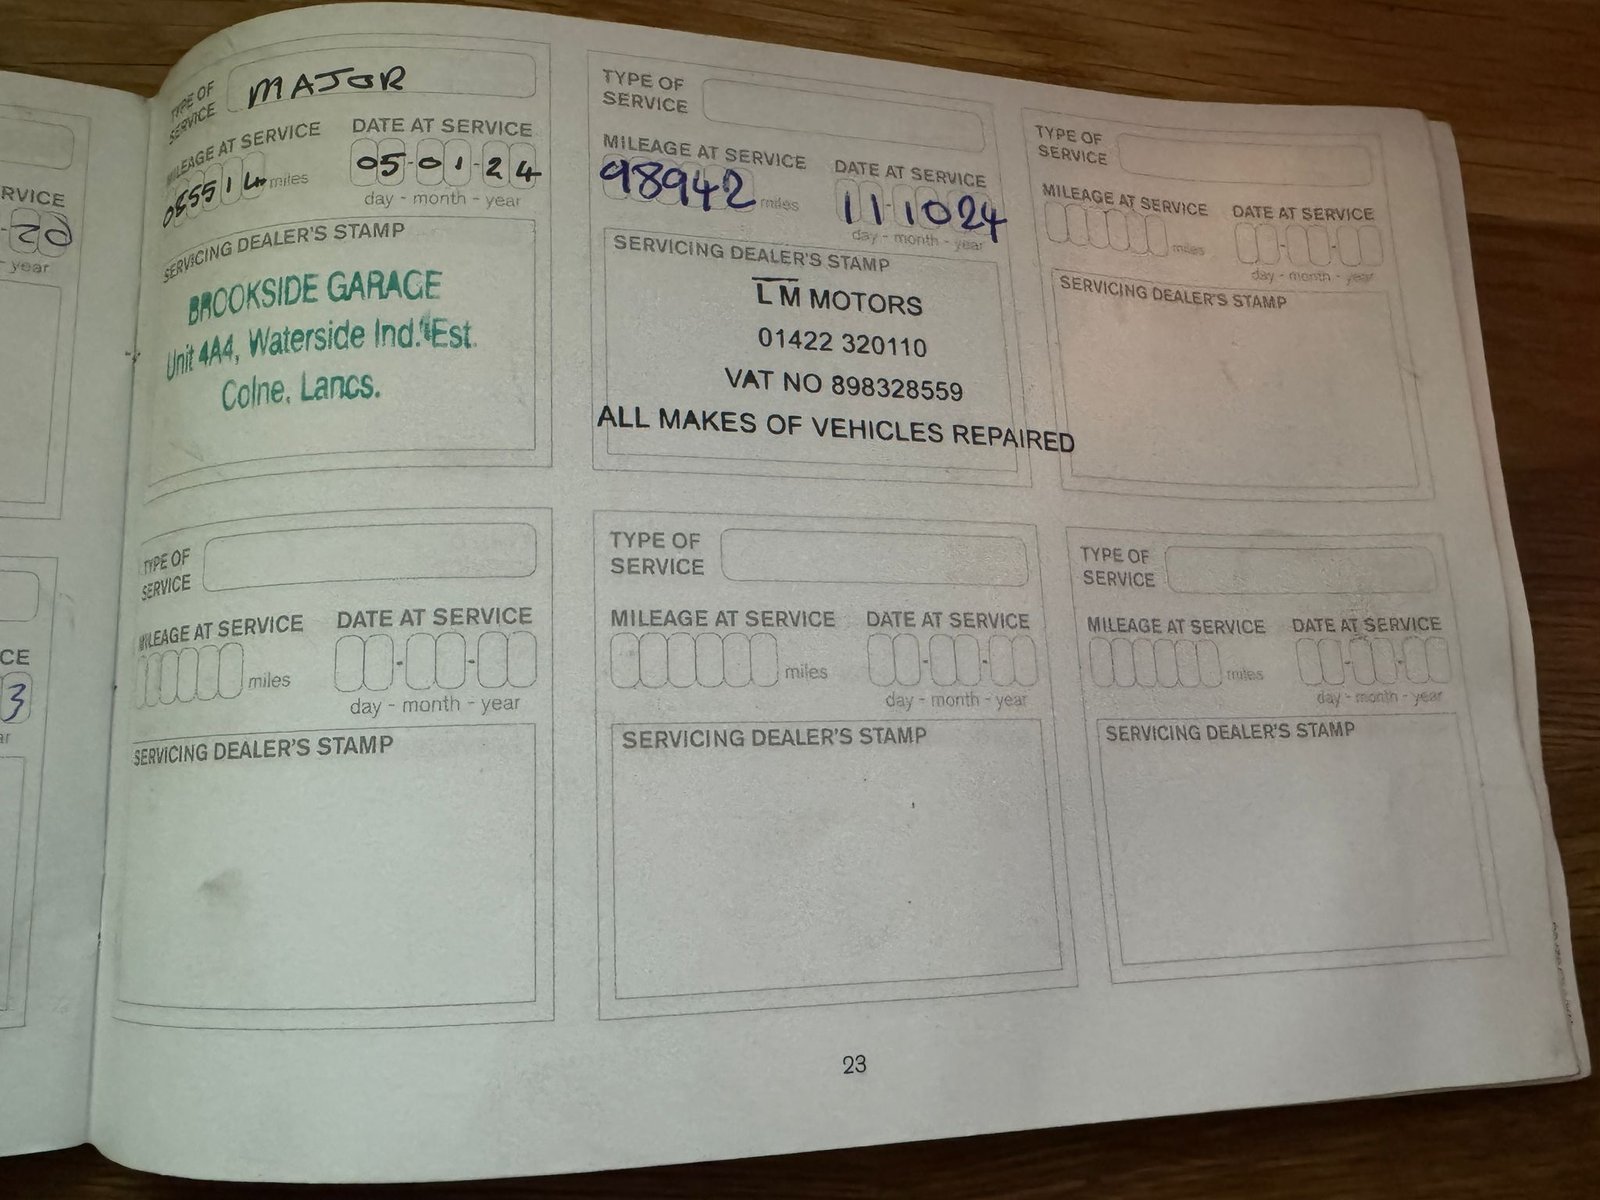 RVICE
-20
year
CE
3
ar
TYPE OF
SERVICE
MAJOR
MILEAGE AT SERVICE
085514 miles
DATE AT SERVICE
05-01-24
day - month - year
SERVICING DEALER'S STAMP
BROOKSIDE GARAGE
Unit 4A4, Waterside Ind. Est.
Colne, Lancs.
TYPE OF
SERVICE
MILEAGE AT SERVICE
98942 miles
DATE AT SERVICE
11-10-24
day - month - year
SERVICING DEALER'S STAMP
L M MOTORS
01422 320110
VAT NO 898328559
ALL MAKES OF VEHICLES REPAIRED
TYPE OF
SERVICE
MILEAGE AT SERVICE
miles
DATE AT SERVICE
day - month - year
SERVICING DEALER'S STAMP
TYPE OF
SERVICE
MILEAGE AT SERVICE
miles
DATE AT SERVICE
day - month - year
SERVICING DEALER'S STAMP
TYPE OF
SERVICE
MILEAGE AT SERVICE
miles
DATE AT SERVICE
day - month - year
SERVICING DEALER'S STAMP
TYPE OF
SERVICE
MILEAGE AT SERVICE
miles
DATE AT SERVICE
day - month - year
SERVICING DEALER'S STAMP
23